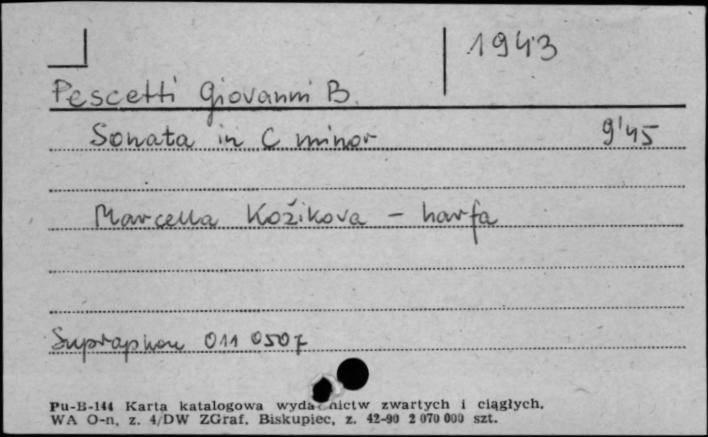 1943
Pescetti Giovanni B.
Sonata in C minor 9'45
Marcella Kožikova – harfa
Supraphon 011 0507
Pu-B-144 Karta katalogowa wyda nictw zwartych i ciągłych.
WA O-n, z. 4/DW ZGraf. Biskupiec, z. 42-90 2 070 000 szt.